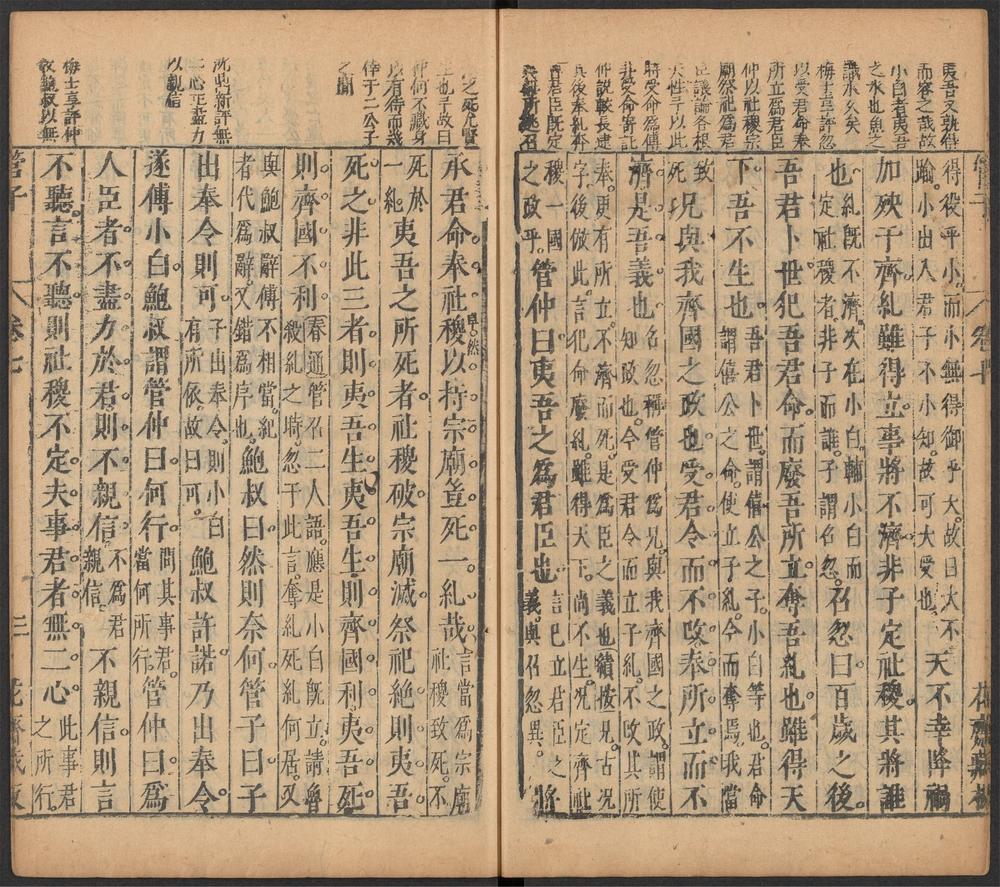 夷吾又孰得
而容之哉故
小白者夷吾
之水也魚之
識水久矣
梅士享評忽
以受君命奉
所立為君臣
仲以社稷宗
廟祭祀為君
臣議論各根
天性亏以此
將受命為傅
非受命寄託
仲說較長逮
其後奉糺奔
魯君臣既定
得役乎小而小無得御乎大故曰大不
踰小出入君子不小知故可大受也
天不幸降禍
加殃于齊糺難得立事將不濟非子定社稷其將誰
也
糺既不濟次在小白輔小白而
定社稷者非子而誰子謂召忽
召忽曰百歲之後
吾君卜世犯吾君命而廢吾所立奪吾糺也雖得天
下吾不生也
吾君卜世謂僖公之子小白等也君命
謂僖公之命使立子糺今而奪焉我當
致
死
况與我齊國之政也受君令而不改奉所立而不
濟是吾義也
名忽稱管仲為兄與我齊國之政謂使
知政也今受君令而立子糺不改其所
奉更有所立不濟而死是為臣之義也續按兄古况
字後倣此言犯命廢糺雖得天下尚不生况定齊社
稷一國
之政乎
管仲曰夷吾之為君臣也
言已立君臣之
義與召忽異
將
之死允賢
生也子故曰
仲何不藏身
以有待而幾
倖于二公子
之間
沈鼎新評無
二心正盡力
以親信
梅士享評仲
敎鮑叔以無
承君命奉社稷以持宗廟豈死一糺哉
言當為宗廟
社稷致死不
死於
一糺
夷吾之所死者社稷破宗廟滅祭祀絶則夷吾
死之非此三者則夷吾生夷吾生則齊國利夷吾死
則齊國不利
春通管召二人語應是小白既立請魯
殺糺之時忽于此言奪糺死糺何居又
與鮑叔辭傅不相當紀
者代為辭又錯為序也
鮑叔曰然則奈何管子曰子
出奉令則可
子出奉令則小白
有所依故曰可
鮑叔許諾乃出奉令
遂傅小白鮑叔謂管仲曰何行
問其事君
當何所行
管仲曰為
人臣者不盡力於君則不親信
不為君
親信
不親信則言
不聽言不聽則社稷不定夫事君者無二心
此事君
之所行
管子
卷七
三
花齋藏板